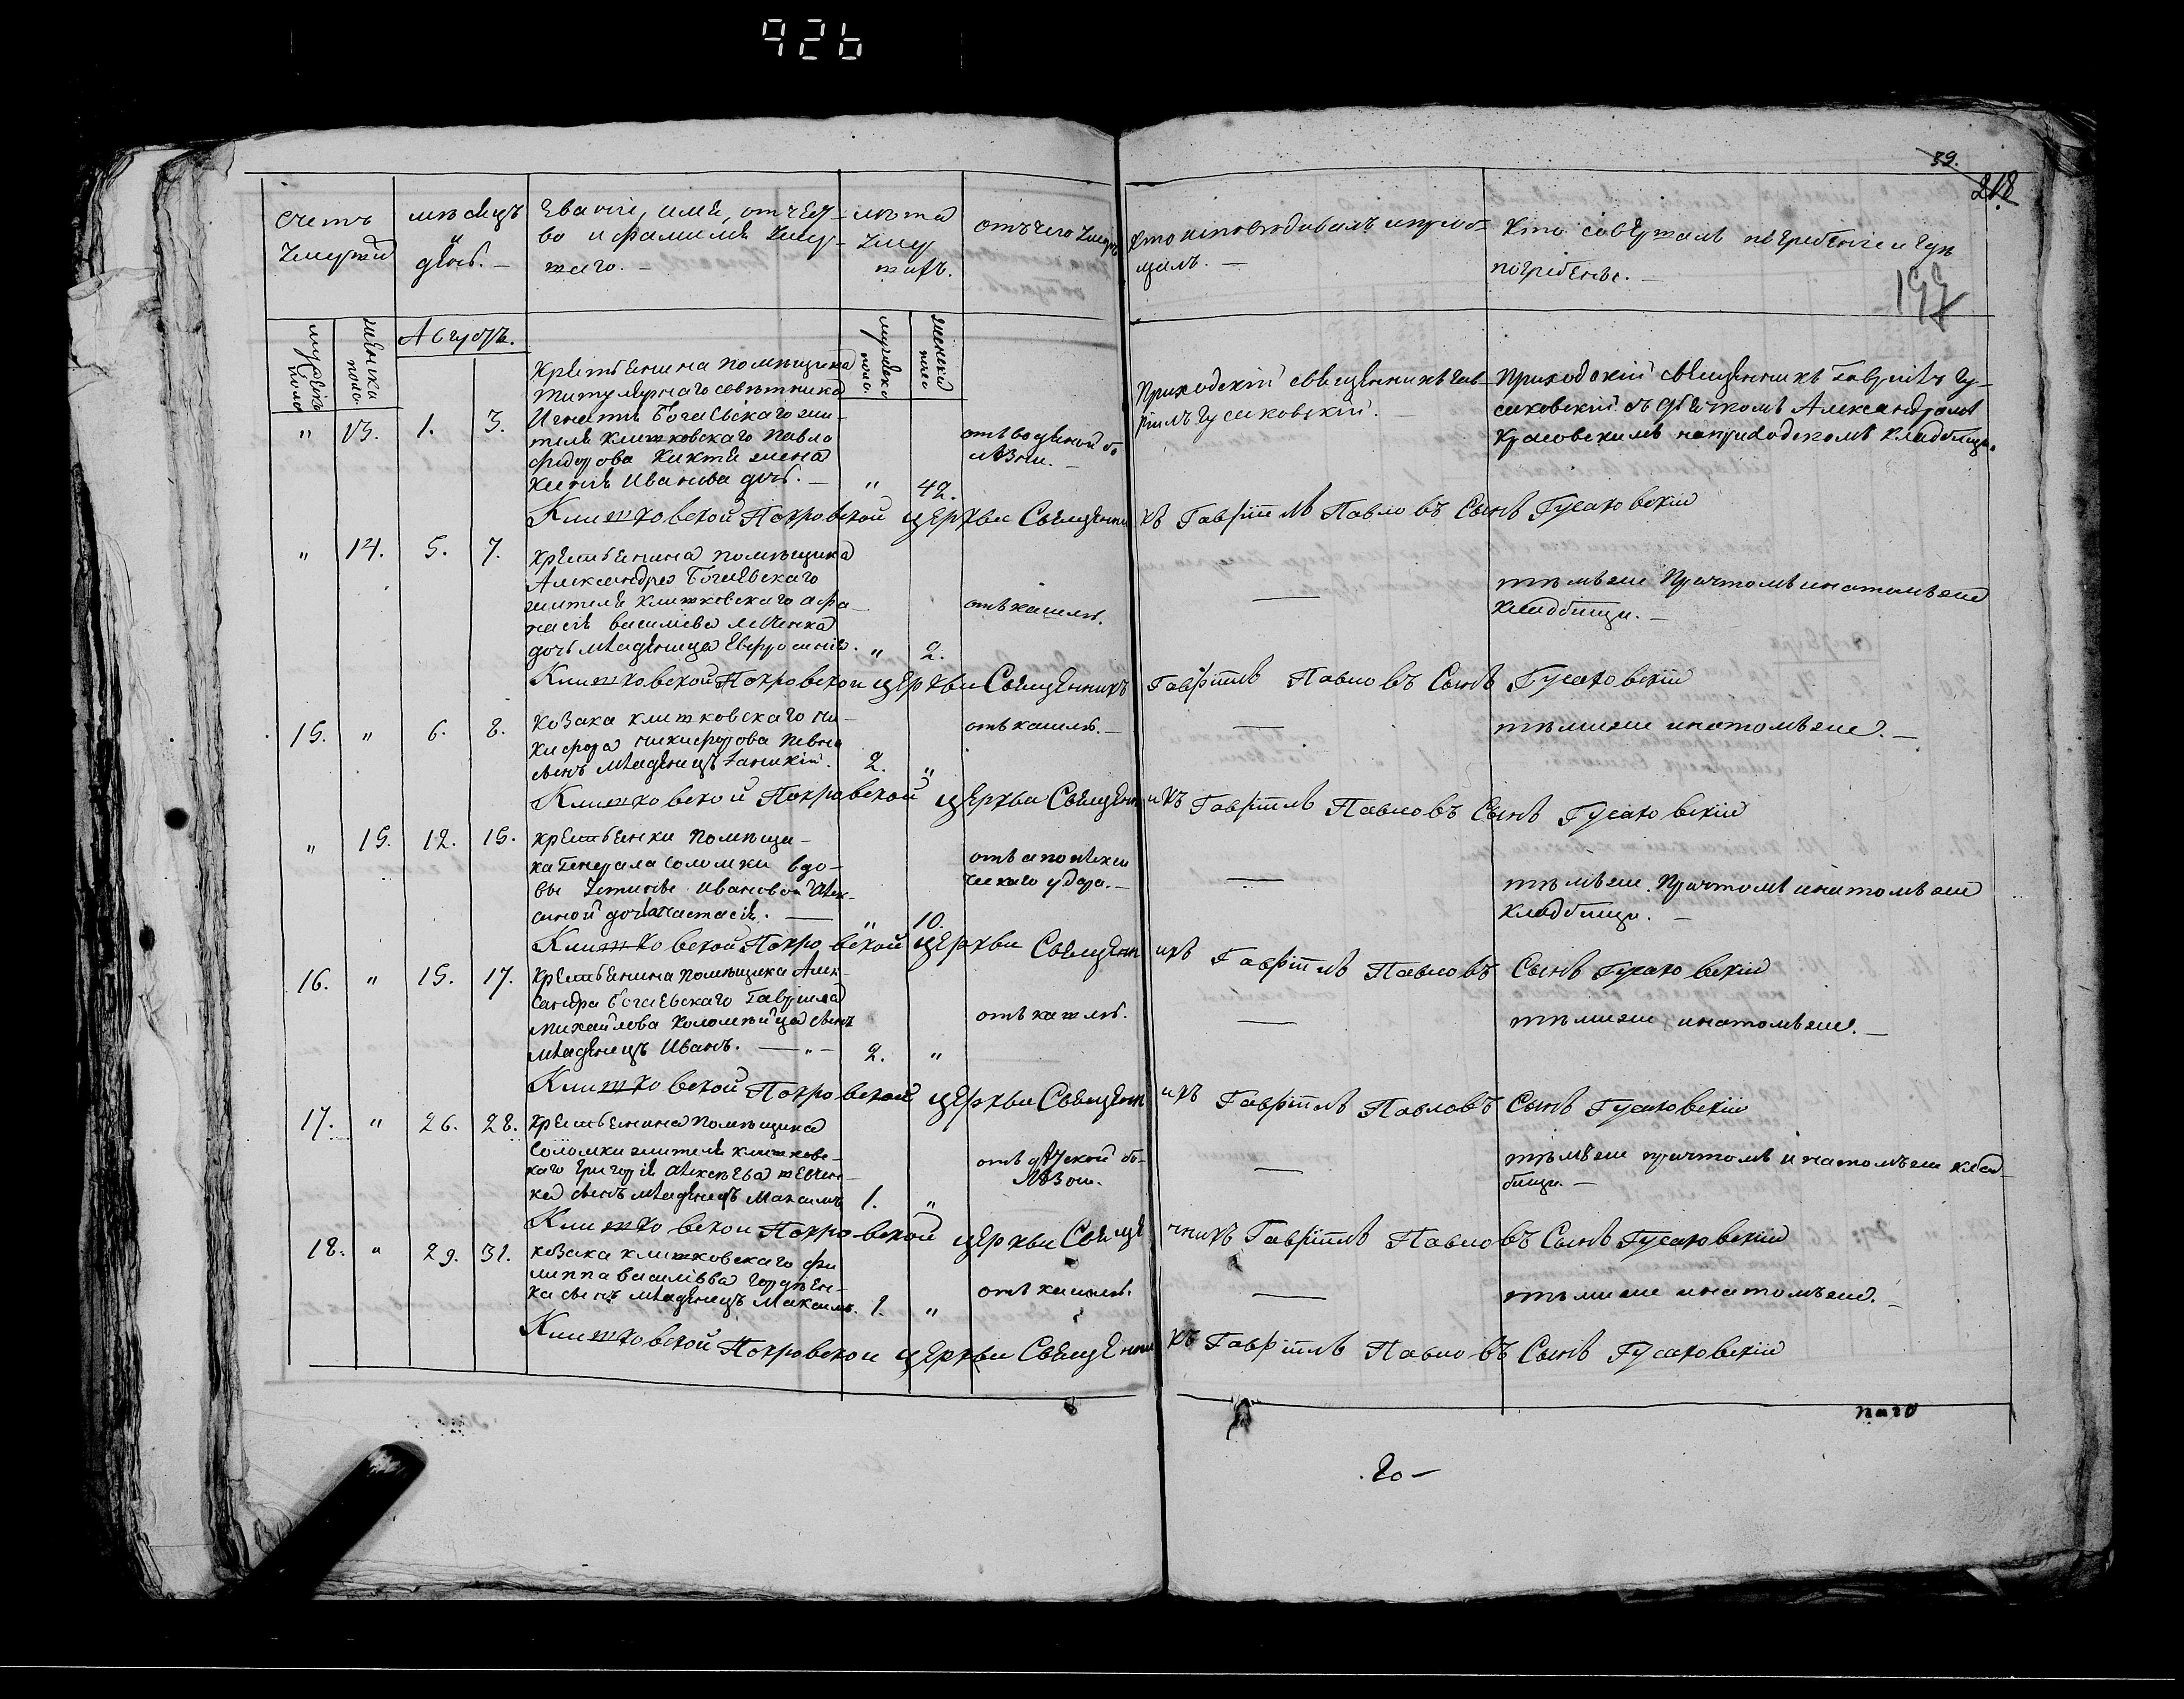 926
39.
218
199
Счетъ
умерш
мѣсяцъ
и
день. —
Званіе, имя, отчест-
во и фамилія умер-
шаго. —
лѣта
умер
шихъ.
отъ чего умеръ
Кто исповедывалъ и пріоб-
щалъ. —
Кто совершалъ погребеніе и гдѣ
погребены. —
мужеска
пола
женска
пола.
Августъ.
мужеска
пола.
женска
пола
" 13. 1. 3.
Крестьянина помѣщика
титулярнаго совѣтника
Игнатія Богаевскаго жи-
теля клишковскаго Павла
Федорова жена
Ксенія Иванова дочь. — " 42.
отъ водяной бо
лѣзни. —
Приходскій священникъ Гав-
ріилъ Гусаковскій. —
Приходскій священникъ Гавріилъ Гу-
саковскій съ дьячкомъ Александромъ
Красовскимъ на приходскомъ кладбищѣ.
Клишковской Покровской церкви Священникъ Гавріилъ Павловъ Сынъ Гусаковскій
" 14. 5. 7.
Крестьянина помѣщика
Александра Богаевскаго
жителя клишковскаго Афа-
насія Василіева
дочь младеница Евфросинія. " 2.
отъ кашля.
—
тѣмъ же причтомъ и на томъ же
кладбищи. —
Клишковской Покровской церкви Священникъ Гавріилъ Павловъ Сынъ Гусаковскій
15. " 6. 8.
Козака клишковскаго Ни-
кифора Никифорова Певна
сынъ младенецъ Іаникій. 2. "
отъ кашля. —
—
тѣмъ же и на томъ же. —
Клишковской Покровской церкви Священникъ Гавріилъ Павловъ Сынъ Гусаковскій
" 15. 12. 15.
крестьянки помѣщи-
ка Генерала Соломки вдо-
вы Устиніи Ивановой
дочь Анастасія. — " 10.
отъ апоплекси
ческаго удара. —
—
тѣмъ же причтомъ и на томъ же
кладбищи. —
Клишковской Покровской церкви Священникъ Гавріилъ Павловъ Сынъ Гусаковскій
16. " 15. 17.
Крестьянина помѣщика Алек-
сандра Богаевскаго Гавріила
Михайлова Коломѣйца сынъ
младенецъ Иванъ. — " — 2. "
отъ кашля.
—
тѣмъ же и на томъ же. —
Клишковской Покровской церкви Священникъ Гавріилъ Павловъ Сынъ Гусаковскій
17. " 26. 28.
Крестьянина помѣщика
Соломки жителя клишковс-
каго Григорія Алексѣева Шевчен-
ка сынъ младенецъ Максимъ 1. "
отъ дѣтской бо-
лѣзни.
—
тѣмъ же причтомъ и на томъ же клад
бищи. —
Клишковской Покровской церкви Священникъ Гавріилъ Павловъ Сынъ Гусаковскій
18. " 29. 31.
козака клишковскаго Фи
липпа Василіева Гордѣен-
ка сынъ младенецъ Максимъ. 1. "
отъ кашля.
—
тѣмъ же и на томъ же. —
Клишковской Покровской церкви Священникъ Гавріилъ Павловъ Сынъ Гусаковскій